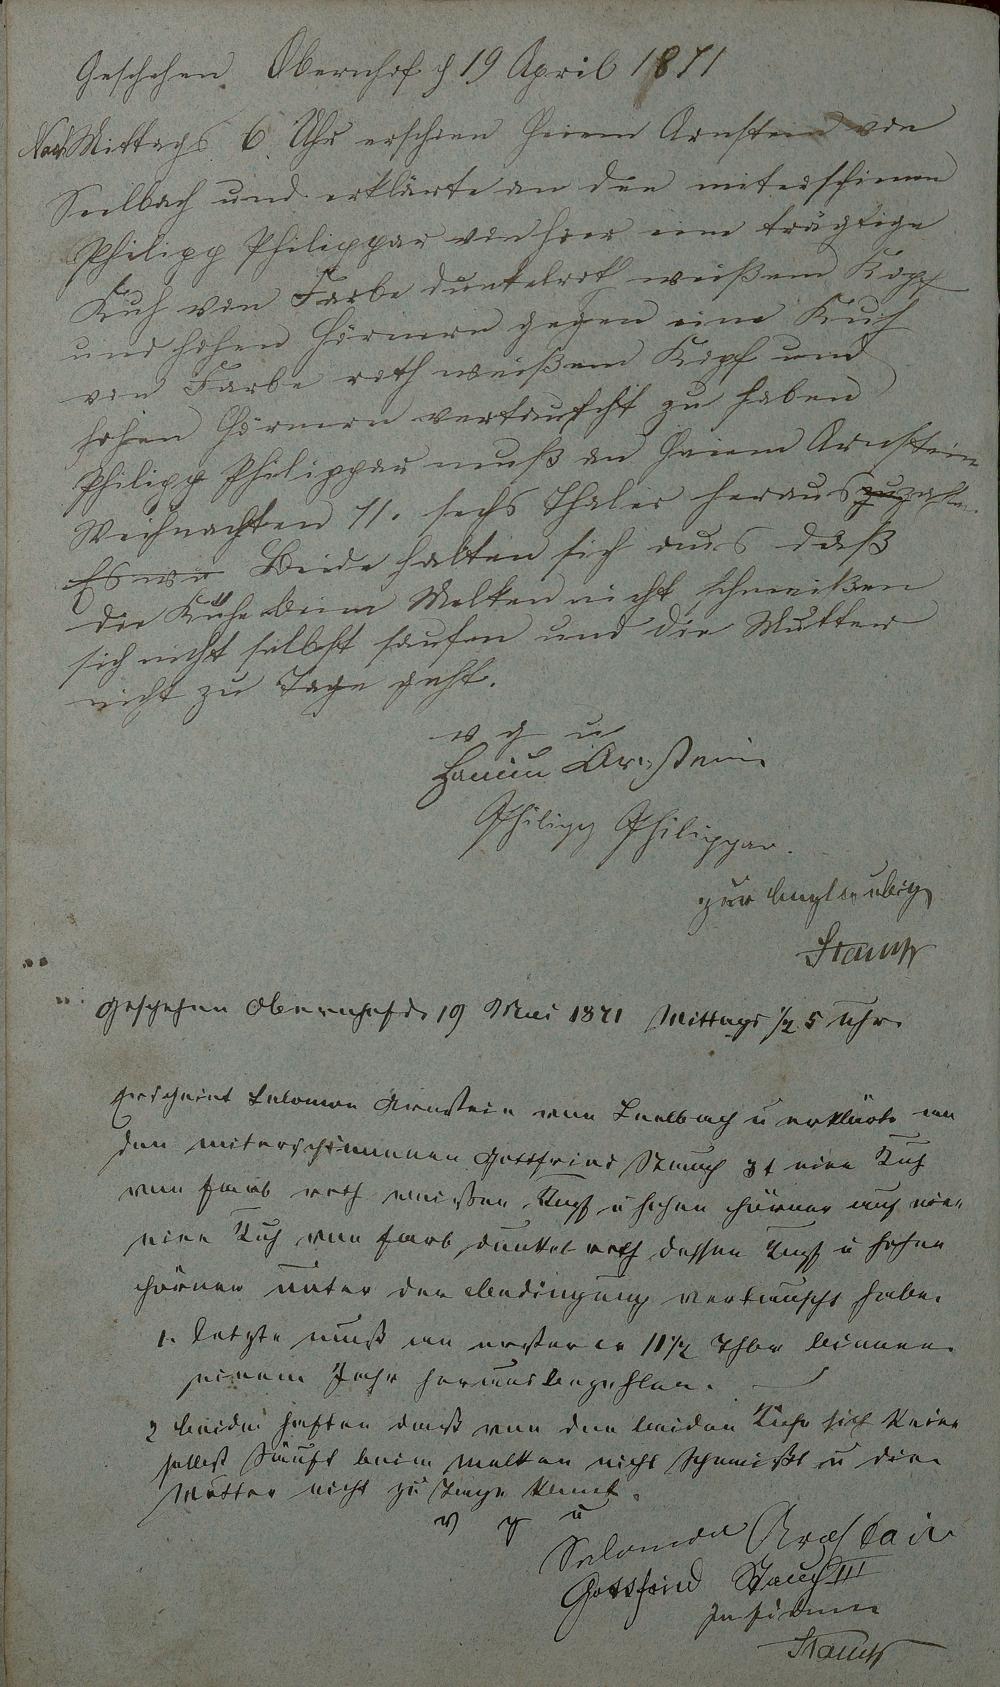 Geschehen Obernhof d 19 April 1871
Nach Mittags 6 Uhr erschien Heium Arnstein von
Seelbach und erklärte an den miterschienen
Philipp Philippar von hier eine trägtige
Kuh von Farbe dunkelroth weißem Kopf
und hohen Hörnern gegen eine Kuh
von Farbe roth weißem Kopf und
hohen Hörnern vertauscht zu haben
Philipp Philippar muß an Heium Arnstein
Weihnachten 71. sechs Thaler heraus zu zahlen
Es wir Beide halten sich aus daß
die Kühe beim Melken nicht schmeißen
sich nicht selbst saufen und die Mutter
nicht zu Tage geht.
v g u
Arnstein
Philipp Philippar.
zur Beglaubig
Stauch
Geschehen Obernhof d. 19 Mai 1871 Mittags ½ 5 Uhr.
Erscheint Salomon Arnstein von Seelbach u erklärte an
den miterschienenen Gottfried Stauch 3t eine Kuh
von Farb roth weißen Kopf u hohen Hörner auf
eine Kuh von Farb dunkel roth dessen Kopf u hohen
Hörner unter der Bedingung vertauscht habe.
1. letzte muß an ersterer 11½ Thlr binnen
einem Jahr heraus bezahlen.
2 beide haften daß von den beiden Kühe sich keine
selbst säuft beim Melken nicht schmeißt u die
Mutter nicht zu Tage kommt.
v g u
Salomon Arnstein
Gottfried Stauch III
In fidem
Stauch